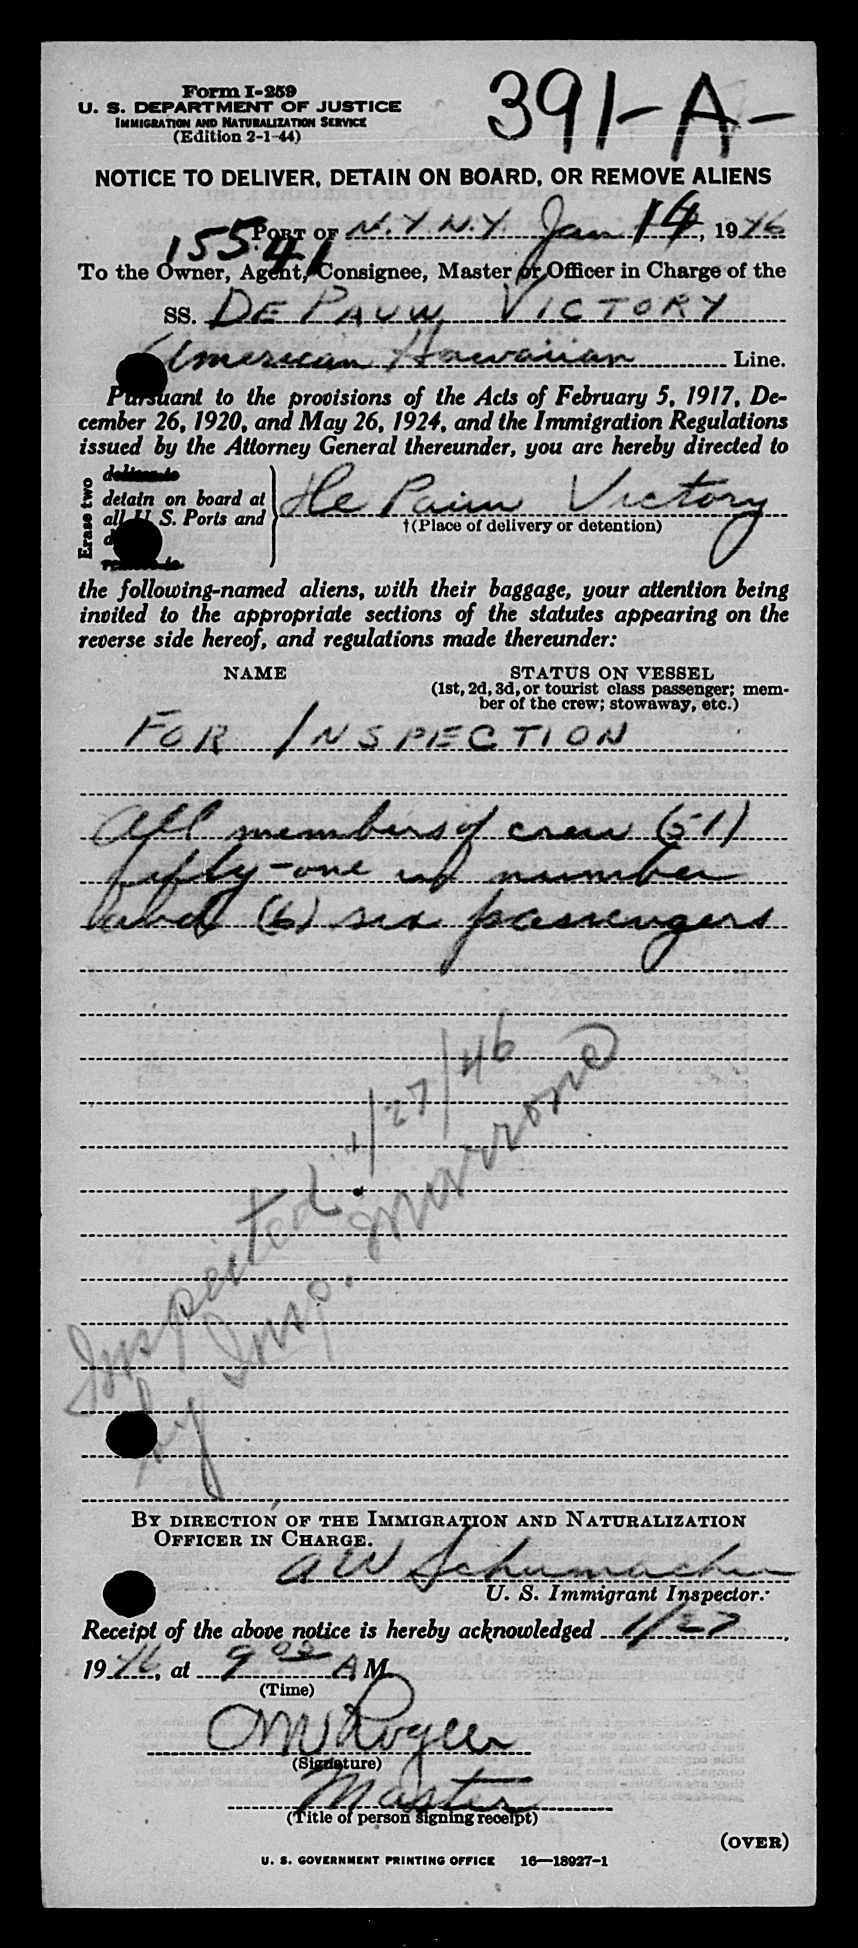 Form I-259
U. S. DEPARTMENT OF JUSTICE
IMMIGRATION AND NATURALIZATION SERVICE
(Edition 2-1-44)
391-A-
NOTICE TO DELIVER, DETAIN ON BOARD, OR REMOVE ALIENS
PORT OF N.Y. N.Y. Jan 14, 1946
15541
To the Owner, Agent, Consignee, Master or Officer in Charge of the
SS. DE PAUW VICTORY
American Hawaiian Line.
Pursuant to the provisions of the Acts of February 5, 1917, De-
cember 26, 1920, and May 26, 1924, and the Immigration Regulations
issued by the Attorney General thereunder, you are hereby directed to
Erase two
deliver to
detain on board at
all U. S. Ports and
De Pauw Victory
†(Place of delivery or detention)
the following-named aliens, with their baggage, your attention being
invited to the appropriate sections of the statutes appearing on the
reverse side hereof, and regulations made thereunder:
NAME
STATUS ON VESSEL
(1st, 2d, 3d, or tourist class passenger; mem-
ber of the crew; stowaway, etc.)
FOR INSPECTION
All members of crew (51)
fifty-one in number
and (6) six passengers
Inspected 1/27/46
by Insp. Marrone
BY DIRECTION OF THE IMMIGRATION AND NATURALIZATION
OFFICER IN CHARGE.
A W Schumacher
U. S. Immigrant Inspector.
Receipt of the above notice is hereby acknowledged 1/27,
1946, at 9 00 A M.
(Time)
(Signature)
Master
(Title of person signing receipt)
(OVER)
U. S. GOVERNMENT PRINTING OFFICE 16—18927-1